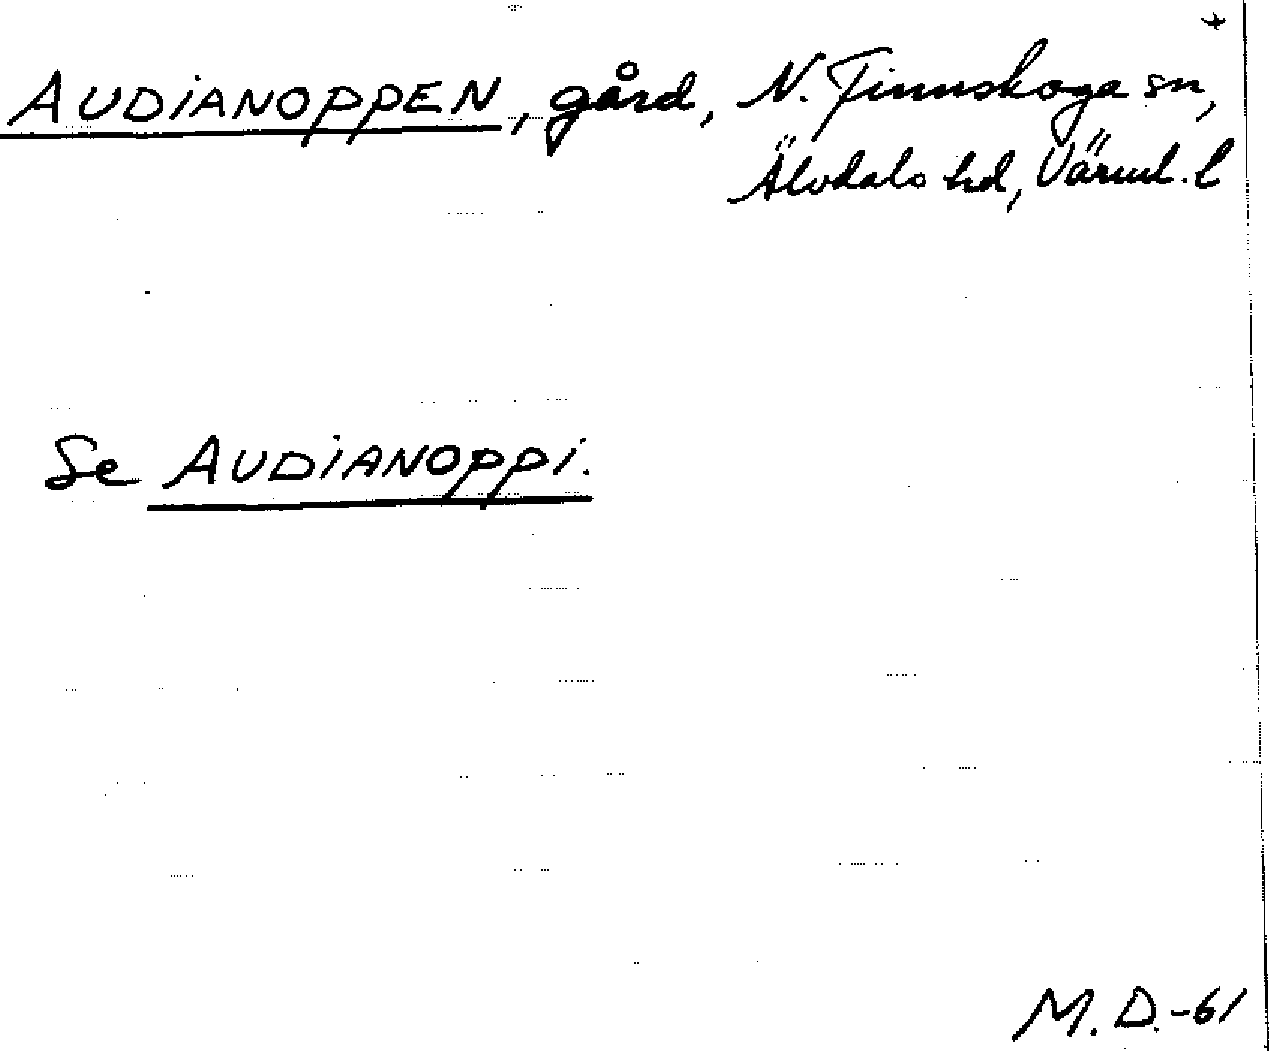 AUDIANOPPEN, gård, N. Finnskoga sn,
Älvdals hd, Värml. l
Se AUDIANOPPI.
M.D.-61